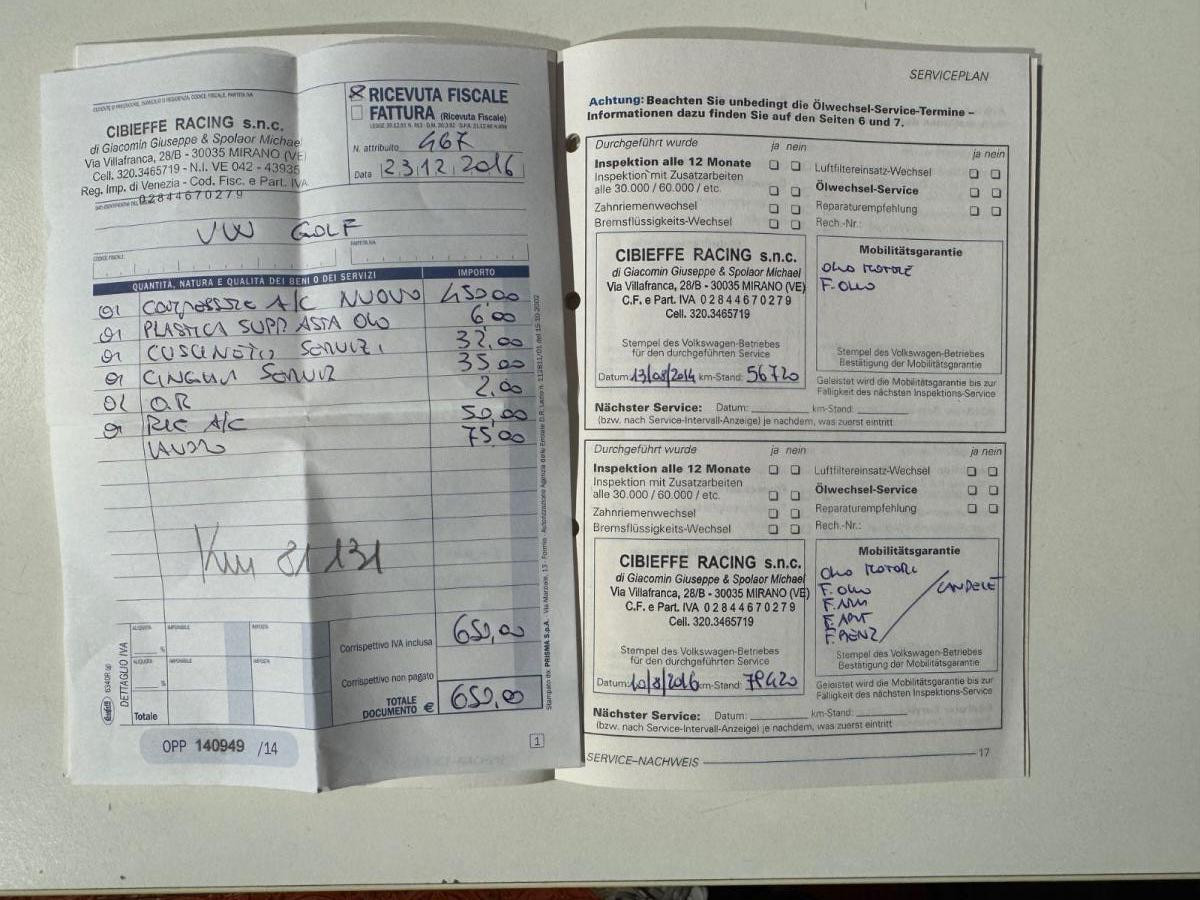 CIBIEFFE RACING s.n.c.
di Giacomin Giuseppe & Spolaor Michael
Via Villafranca, 28/B - 30035 MIRANO (VE)
Cell. 320.3465719 - N.I. VE 042 - 43935
Reg. Imp. di Venezia - Cod. Fisc. e Part. IVA
02844670279
RICEVUTA FISCALE
FATTURA (Ricevuta Fiscale)
N. attribuito 467
Data 23.12.2016
VW GOLF
CODICE FISCALE
PARTITA IVA
QUANTITA, NATURA E QUALITA DEI BENI O DEI SERVIZI IMPORTO
01 COMPRESSORE A/C NUOVO 450,00
01 PLASTICA SUPP ASTA OLIO 6,00
01 CUSCINETTO SERVIZI 32,00
01 CINGHIA SERVIZ 35,00
01 O.R 2,00
01 RIC A/C 50,00
LAVORO 75,00
Km 81131
DETTAGLIO IVA
ALIQUOTA IMPONIBILE IMPOSTA
%
ALIQUOTA IMPONIBILE IMPOSTA
%
Totale
Corrispettivo IVA inclusa 650,00
Corrispettivo non pagato
TOTALE DOCUMENTO € 650,00
OPP 140949 /14
1
SERVICEPLAN
Achtung: Beachten Sie unbedingt die Ölwechsel-Service-Termine –
Informationen dazu finden Sie auf den Seiten 6 und 7.
Durchgeführt wurde ja nein ja nein
Inspektion alle 12 Monate Luftfiltereinsatz-Wechsel
Inspektion mit Zusatzarbeiten
alle 30.000 / 60.000 / etc. Ölwechsel-Service
Zahnriemenwechsel Reparaturempfehlung
Bremsflüssigkeits-Wechsel Rech.-Nr.:
CIBIEFFE RACING s.n.c.
di Giacomin Giuseppe & Spolaor Michael
Via Villafranca, 28/B - 30035 MIRANO (VE)
C.F. e Part. IVA 02844670279
Cell. 320.3465719
Stempel des Volkswagen-Betriebes
für den durchgeführten Service
Datum: 13/08/2014 km-Stand: 56720
Mobilitätsgarantie
OLIO MOTORE
F. OLIO
Stempel des Volkswagen-Betriebes
Bestätigung der Mobilitätsgarantie
Geleistet wird die Mobilitätsgarantie bis zur
Fälligkeit des nächsten Inspektions-Service
Nächster Service: Datum: km-Stand:
(bzw. nach Service-Intervall-Anzeige) je nachdem, was zuerst eintritt
Durchgeführt wurde ja nein ja nein
Inspektion alle 12 Monate Luftfiltereinsatz-Wechsel
Inspektion mit Zusatzarbeiten
alle 30.000 / 60.000 / etc. Ölwechsel-Service
Zahnriemenwechsel Reparaturempfehlung
Bremsflüssigkeits-Wechsel Rech.-Nr.:
CIBIEFFE RACING s.n.c.
di Giacomin Giuseppe & Spolaor Michael
Via Villafranca, 28/B - 30035 MIRANO (VE)
C.F. e Part. IVA 02844670279
Cell. 320.3465719
Stempel des Volkswagen-Betriebes
für den durchgeführten Service
Datum: 10/8/2016 km-Stand: 79420
Mobilitätsgarantie
OLIO MOTORE
F. OLIO CANDELE
F. ARIA
F. ANT
F. BENZ
Stempel des Volkswagen-Betriebes
Bestätigung der Mobilitätsgarantie
Geleistet wird die Mobilitätsgarantie bis zur
Fälligkeit des nächsten Inspektions-Service
Nächster Service: Datum: km-Stand:
(bzw. nach Service-Intervall-Anzeige) je nachdem, was zuerst eintritt
SERVICE–NACHWEIS 17